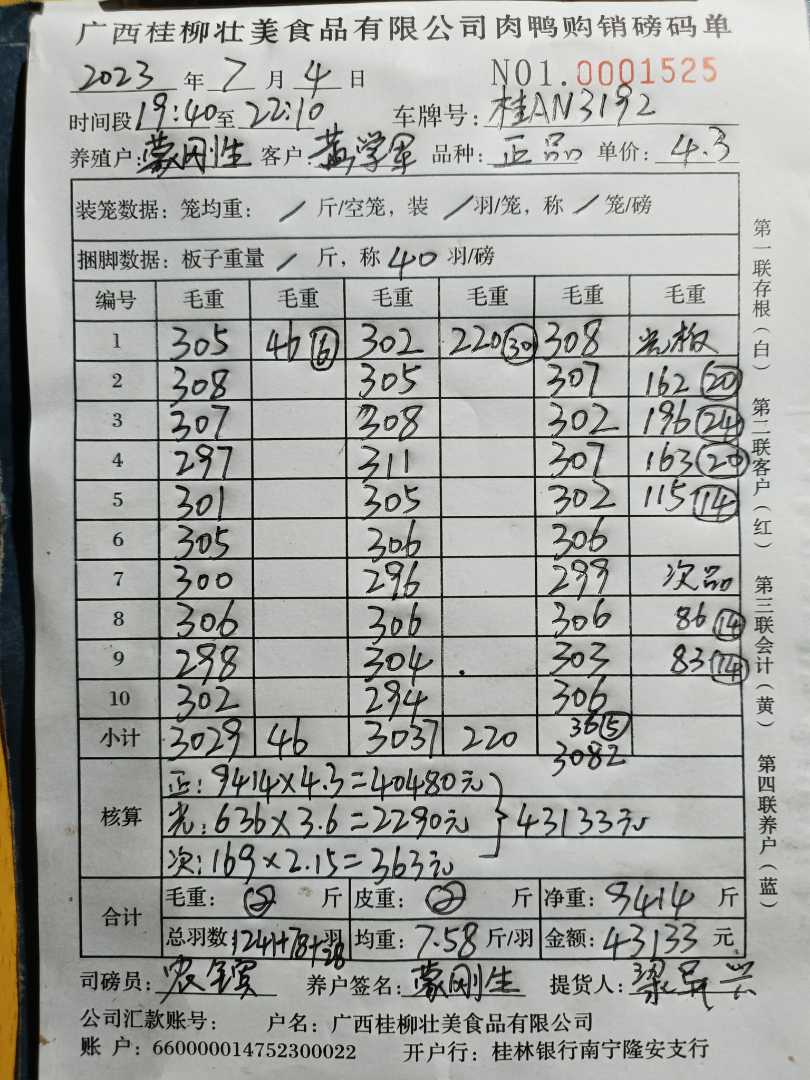 广西桂柳壮美食品有限公司肉鸭购销磅码单
2023 年 7 月 4 日 NO1.0001525
时间段 19:40 至 22:10 车牌号: 桂AN3192
养殖户: 蒙刚生 客户: 黄学军 品种: 正品 单价: 4.3
装笼数据: 笼均重: / 斤/空笼, 装 / 羽/笼, 称 / 笼/磅
捆脚数据: 板子重量 / 斤, 称 40 羽/磅
编号 毛重 毛重 毛重 毛重 毛重 毛重
1 305 46 (6) 302 220 (30) 308 光板
2 308 305 307 162 (20)
3 307 308 302 196 (24)
4 297 311 307 163 (20)
5 301 305 302 115 (14)
6 305 306 306
7 300 296 299 次品
8 306 306 306 86 (14)
9 298 304 303 83 (14)
10 302 294 306
36 (5)
小计 3029 46 3037 220 3082
核算
正: 9414×4.3=40480元
光: 636×3.6=2290元 } 43133元
次: 169×2.15=363元
合计
毛重: 斤 皮重: 斤 净重: 9414 斤
总羽数 1241+78+28 羽 均重: 7.58 斤/羽 金额: 43133 元
司磅员: 养户签名: 蒙刚生 提货人:
公司汇款账号: 户名: 广西桂柳壮美食品有限公司
账 户: 660000014752300022 开户行: 桂林银行南宁隆安支行
第一联存根(白) 第二联客户(红) 第三联会计(黄) 第四联养户(蓝)